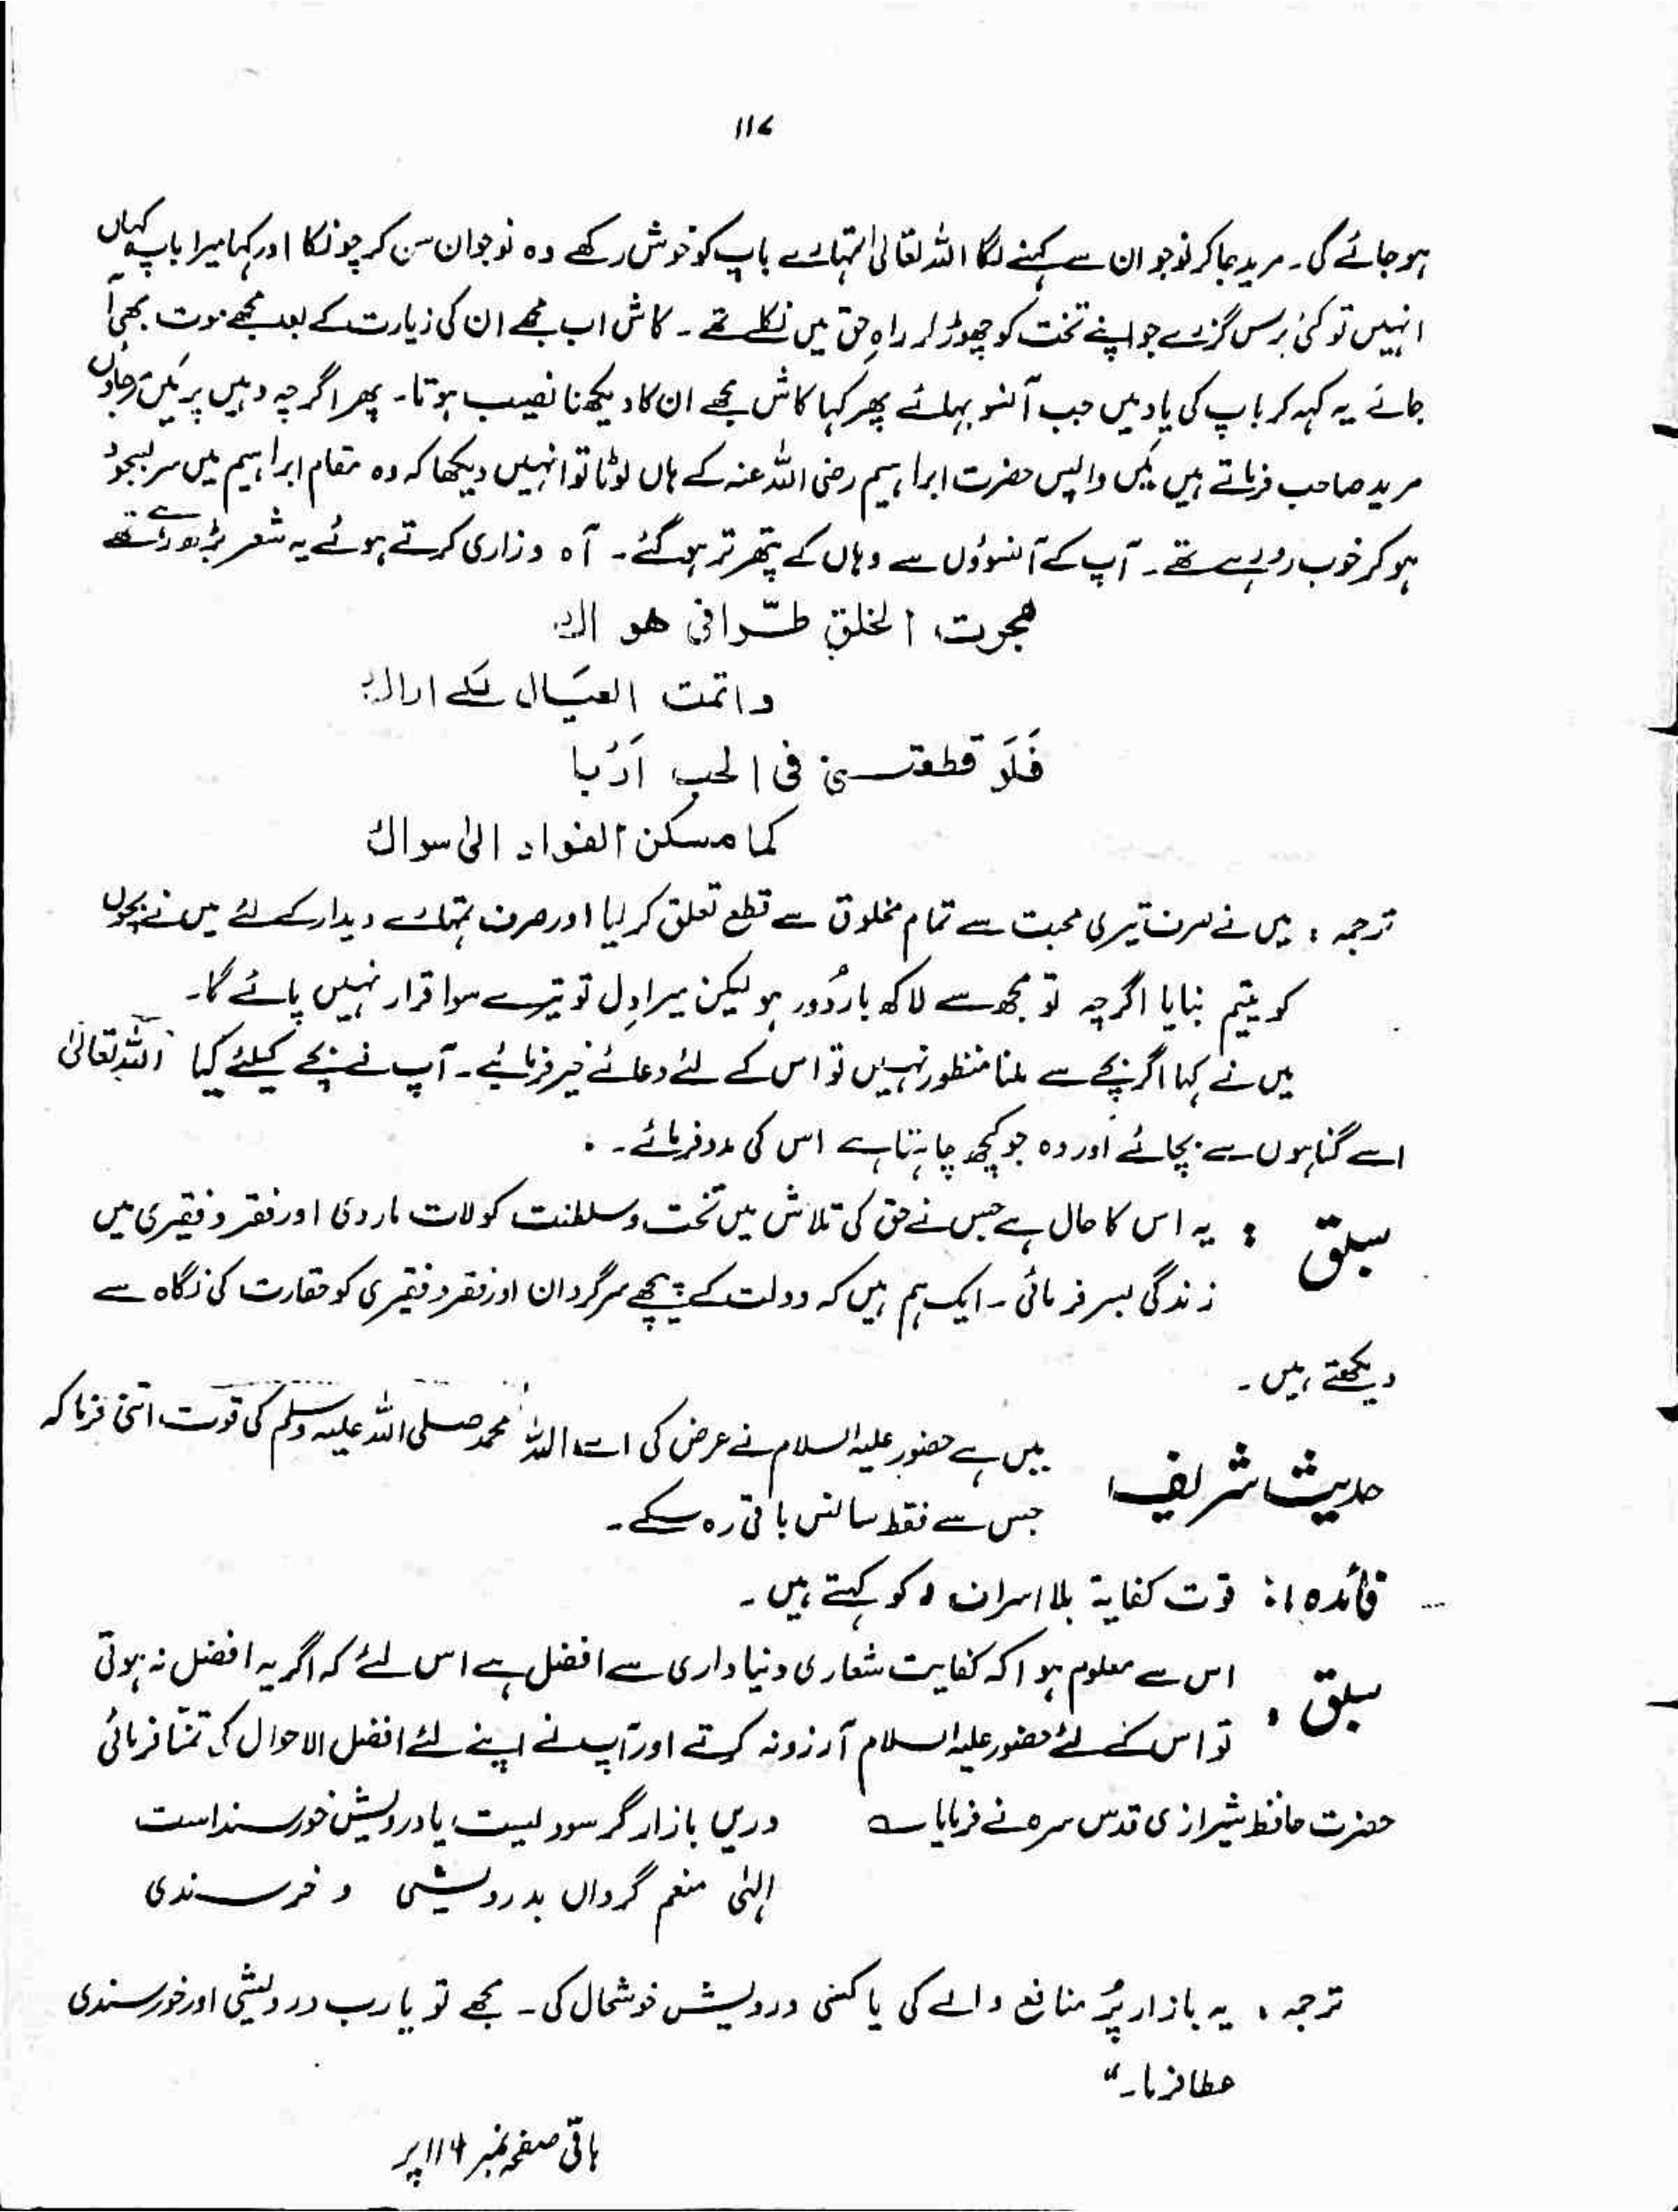 ۱۱۷
ہو جائے گی۔ مرید جا کر نوجوان سے کہنے لگا اللہ تعالیٰ تمہارے باپ کو خوش رکھے وہ نوجوان سن کر چونکا اور کہا میرا باپ کہاں
انہیں تو کئی برس گزرے جو اپنے تخت کو چھوڑ کر راہِ حق میں نکلے تھے۔ کاش اب مجھے ان کی زیارت کے بعد مجھے موت بھی آ
جائے یہ کہہ کر باپ کی یاد میں جب آنسو بہائے پھر کہا کاش مجھے ان کا دیکھنا نصیب ہوتا۔ پھر اگرچہ وہیں پر میں مر جاؤں
مرید صاحب فرماتے ہیں میں واپس حضرت ابراہیم رضی اللہ عنہ کے ہاں لوٹا تو انہیں دیکھا کہ وہ مقام ابراہیم میں سر بسجود
ہو کر خوب رو رہے تھے۔ آپ کے آنسوؤں سے وہاں کے پتھر تر ہو گئے۔ آہ و زاری کرتے ہوئے یہ شعر پڑھ رہے تھے
ھجرت الخلق طرّا فی ھواک
واتمت العیَال لکے اراک
فَلَو قطعتنی فی الحب اَرُبا
کما مسکن الفواد الیٰ سواک
ترجمہ : میں نے صرف تیری محبت سے تمام مخلوق سے قطع تعلق کر لیا اور صرف تمہارے دیدار کے لئے میں نے بچوں
کو یتیم بنایا اگرچہ تو مجھ سے لاکھ بار دُور ہو لیکن میرا دِل تو تیرے سوا قرار نہیں پائے گا۔
میں نے کہا اگر بچے سے ملنا منظور نہیں تو اس کے لئے دعائے خیر فرمائیے۔ آپ نے بچے کیلئے کہا اللہ تعالیٰ
اسے گناہوں سے بچائے اور وہ جو کچھ چاہتا ہے اس کی مدد فرمائے۔
سبق : یہ اس کا حال ہے جس نے حق کی تلاش میں تخت و سلطنت کو لات مار دی اور فقر و فقیری میں
زندگی بسر فرمائی۔ ایک ہم ہیں کہ دولت کے پیچھے سرگردان اور فقر و فقیری کو حقارت کی نگاہ سے
دیکھتے ہیں۔
حدیث شریف میں ہے حضور علیہ السلام نے عرض کی اے اللہ محمد صلی اللہ علیہ وسلم کی قوت اتنی فرما کہ
جس سے فقط سانس باقی رہ سکے۔
فائدہ : قوت کفایۃ بلا اسراف کو کہتے ہیں۔
سبق : اس سے معلوم ہوا کہ کفایت شعاری دنیا داری سے افضل ہے اس لئے کہ اگر یہ افضل نہ ہوتی
تو اس کے لئے حضور علیہ السلام آرزو نہ کرتے اور آپ نے اپنے لئے افضل الاحوال کی تمنّا فرمائی
حضرت حافظ شیرازی قدس سرہ نے فرمایا ؎ دریں بازار گر سود لیست یا درویش خورسند است
الہٰی منعم گرداں بدرویشی و خرسندی
ترجمہ : یہ بازار پُر منافع والے کی یا کسی درویش خوشحال کی۔ مجھے تو یارب درویشی اور خورسندی
عطا فرما۔“
باقی صفحہ نمبر ۱۱۴ پر